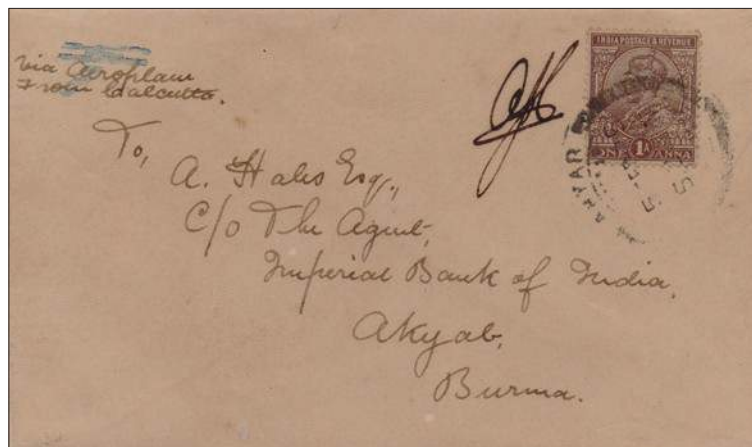 via Aeroplane
From Calcutta.
INDIA POSTAGE & REVENUE
1A
ONE ANNA
To,
A. Hales Esq.,
C/o The Agent,
Imperial Bank of India,
Akyab,
Burma.